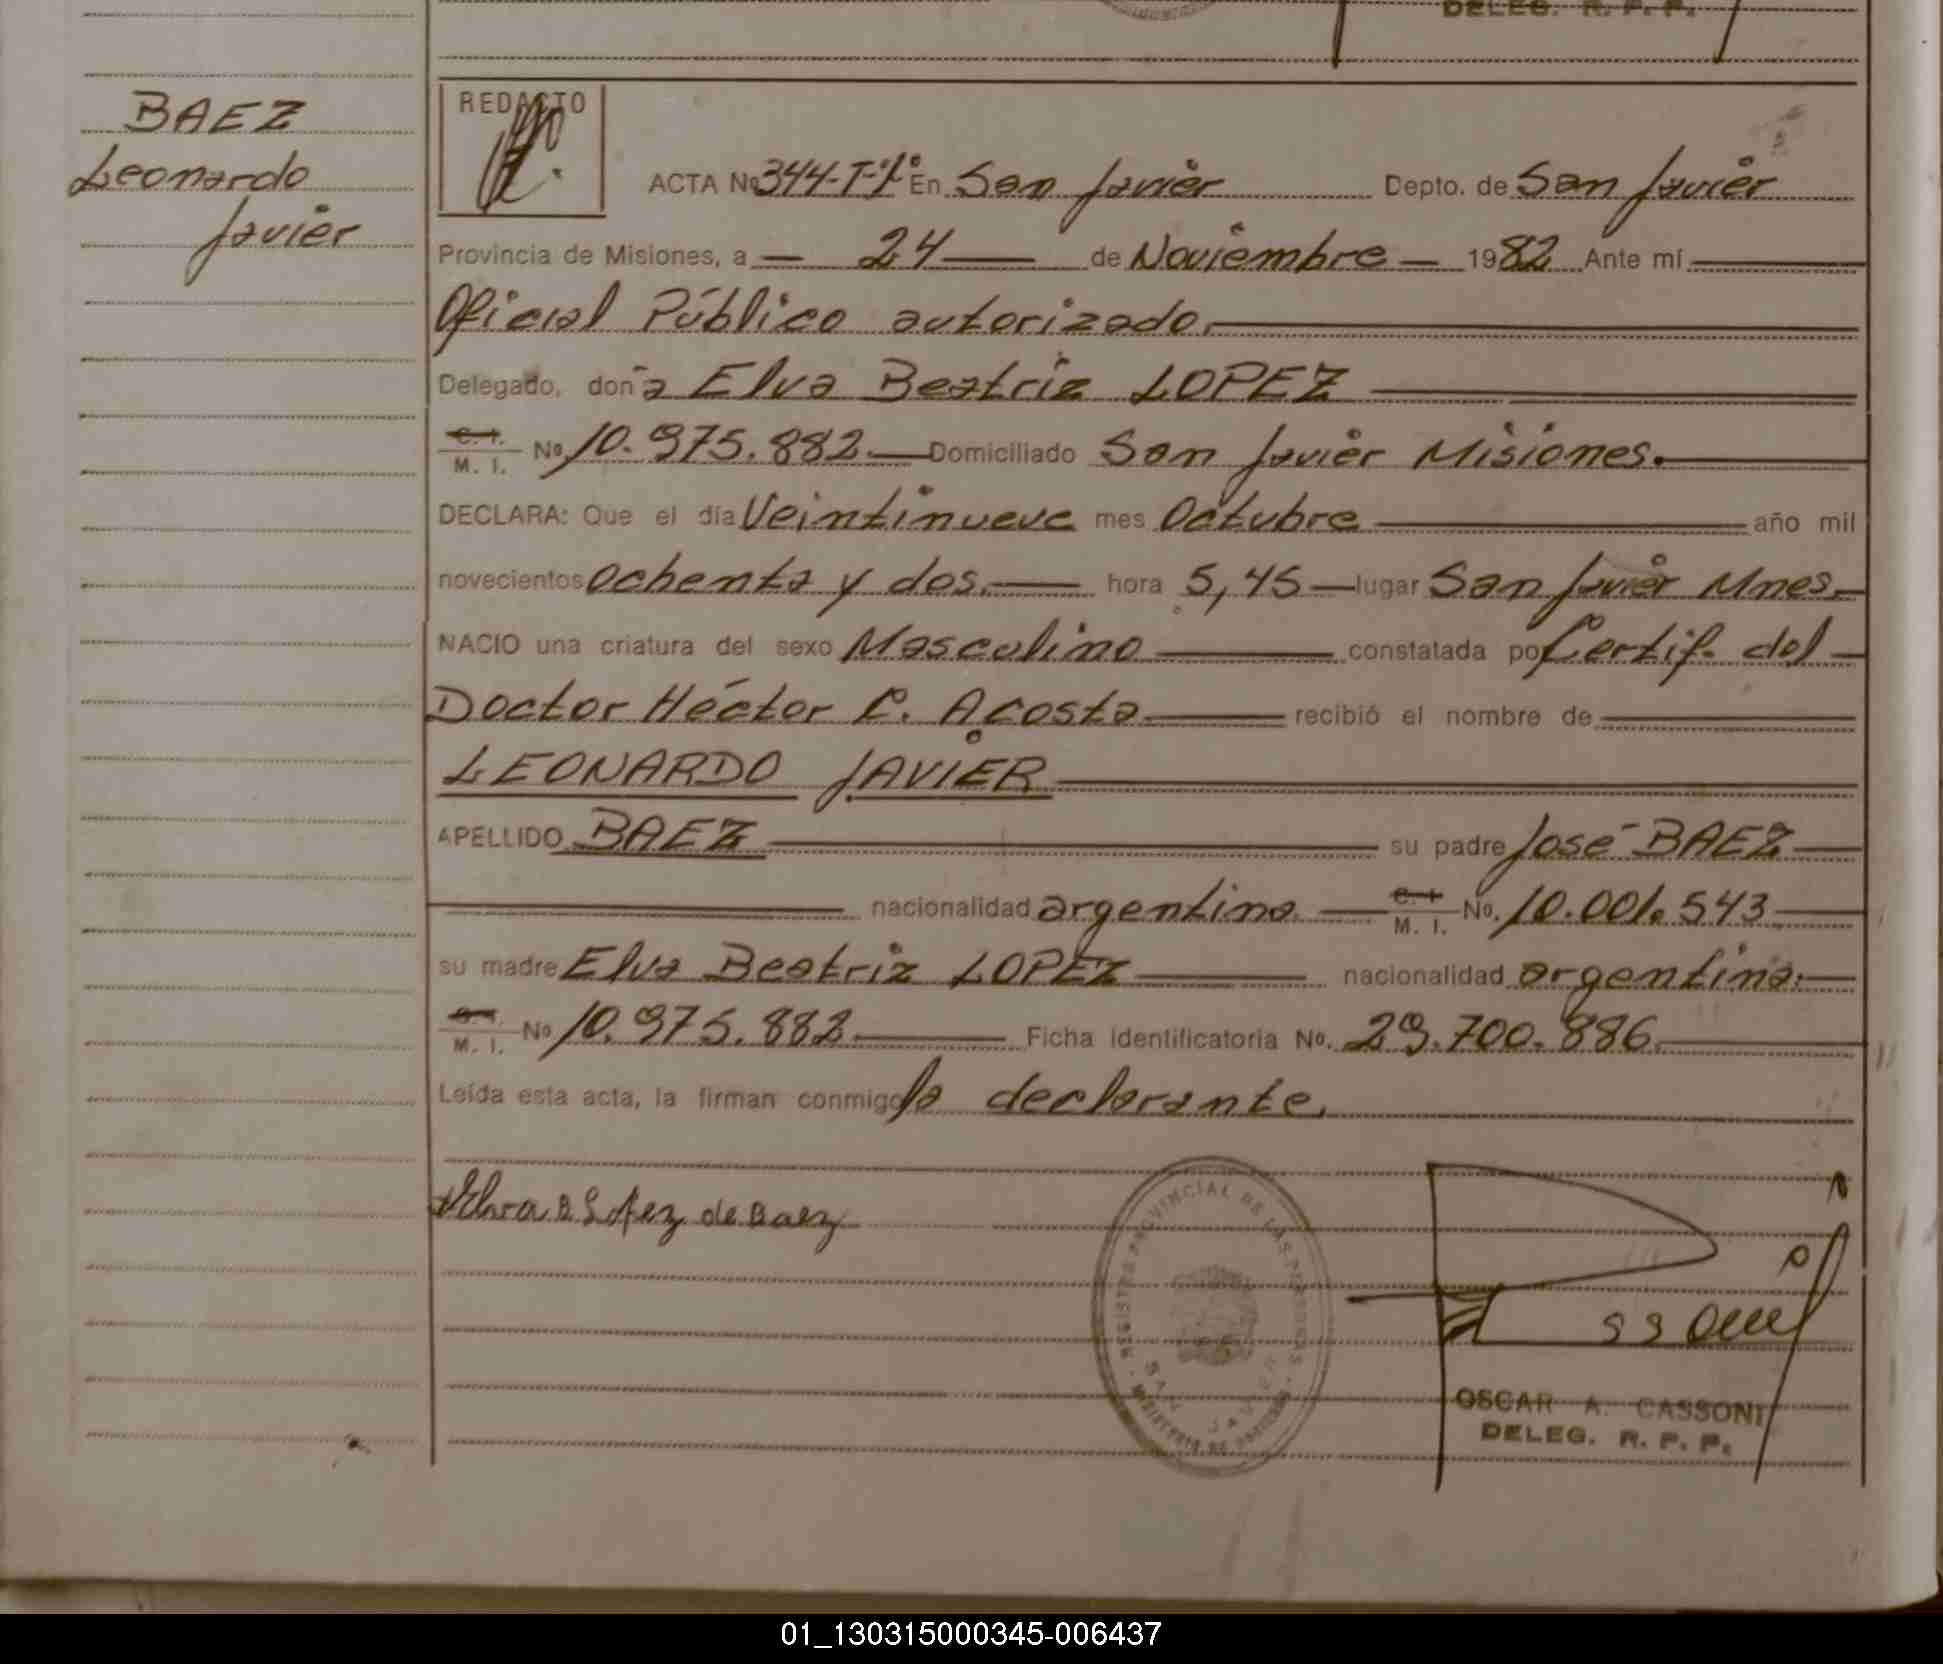 DELEG. R. P. P.
BAEZ
Leonardo
Javier
REDACTO
ACTA No 344-T-1º En San Javier Depto. de San Javier
Provincia de Misiones, a — 24 — de Noviembre — 1982 Ante mí
Oficial Público autorizado.
Delegado, doña Elva Beatriz LOPEZ
C. I.
M. I. No. 10.975.882.— Domiciliado San Javier Misiones.
DECLARA: Que el día Veintinueve mes Octubre año mil
novecientos ochenta y dos.— hora 5,45 — lugar San Javier Mnes.
NACIO una criatura del sexo Masculino constatada por Certif. del
Doctor Héctor C. Acosta recibió el nombre de
LEONARDO JAVIER
APELLIDO BAEZ su padre José BAEZ
nacionalidad argentina C. I. M. I. No. 10.001.543
su madre Elva Beatriz LOPEZ nacionalidad argentina.
C. I. M. I. No. 10.975.882 Ficha identificatoria No. 29.700.886.
Leída esta acta, la firman conmigo la declarante.
Elva B López de Baez
REGISTRO PROVINCIAL DE LAS PERSONAS
SAN JAVIER
MINISTERIO DE GOBIERNO
OSCAR A. CASSONI
DELEG. R. P. P.
01_130315000345-006437